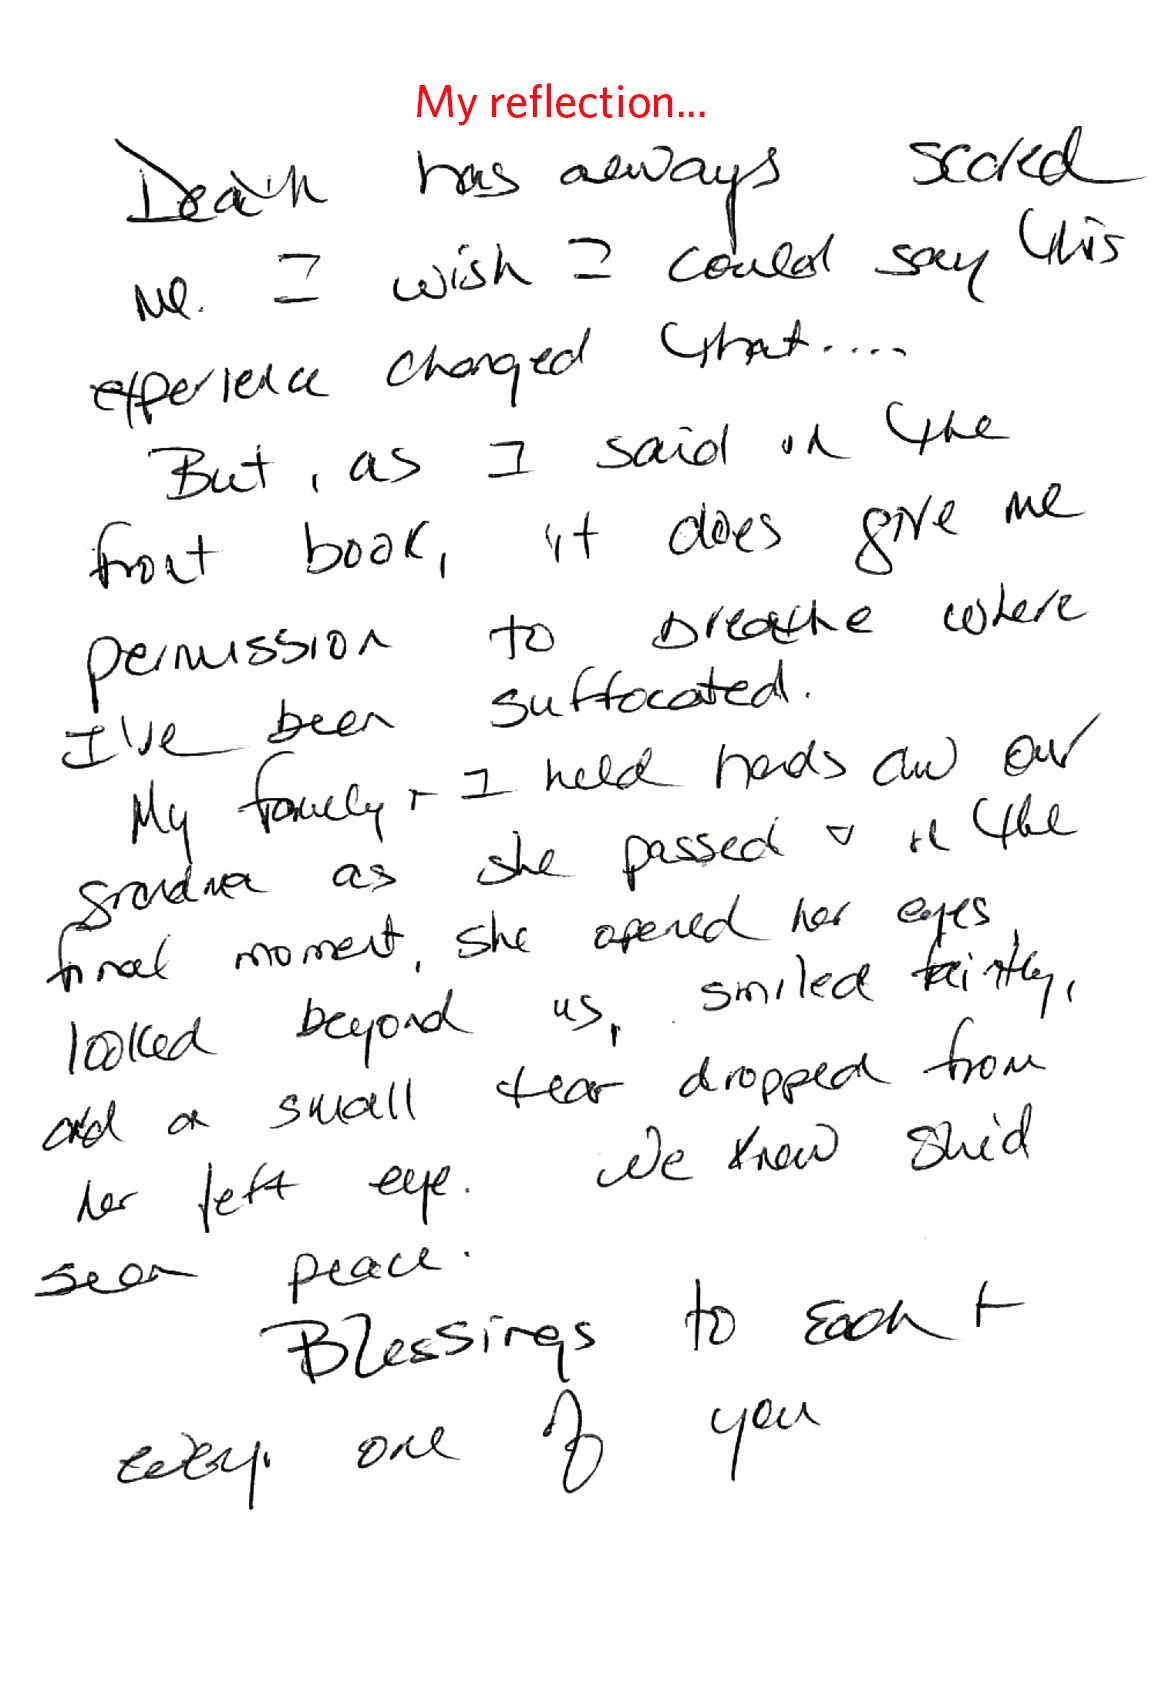 My reflection...
Death has always scared
me. I wish I could say this
experience changed that....
But, as I said in the
front book, it does give me
permission to breathe where
I've been suffocated.
My family + I held hands our
grandma as she passed + in the
final moment, she opened her eyes,
looked beyond us, smiled faintly,
and a small tear dropped from
her left eye. We knew she'd
seen peace.
Blessings to each +
every one of you